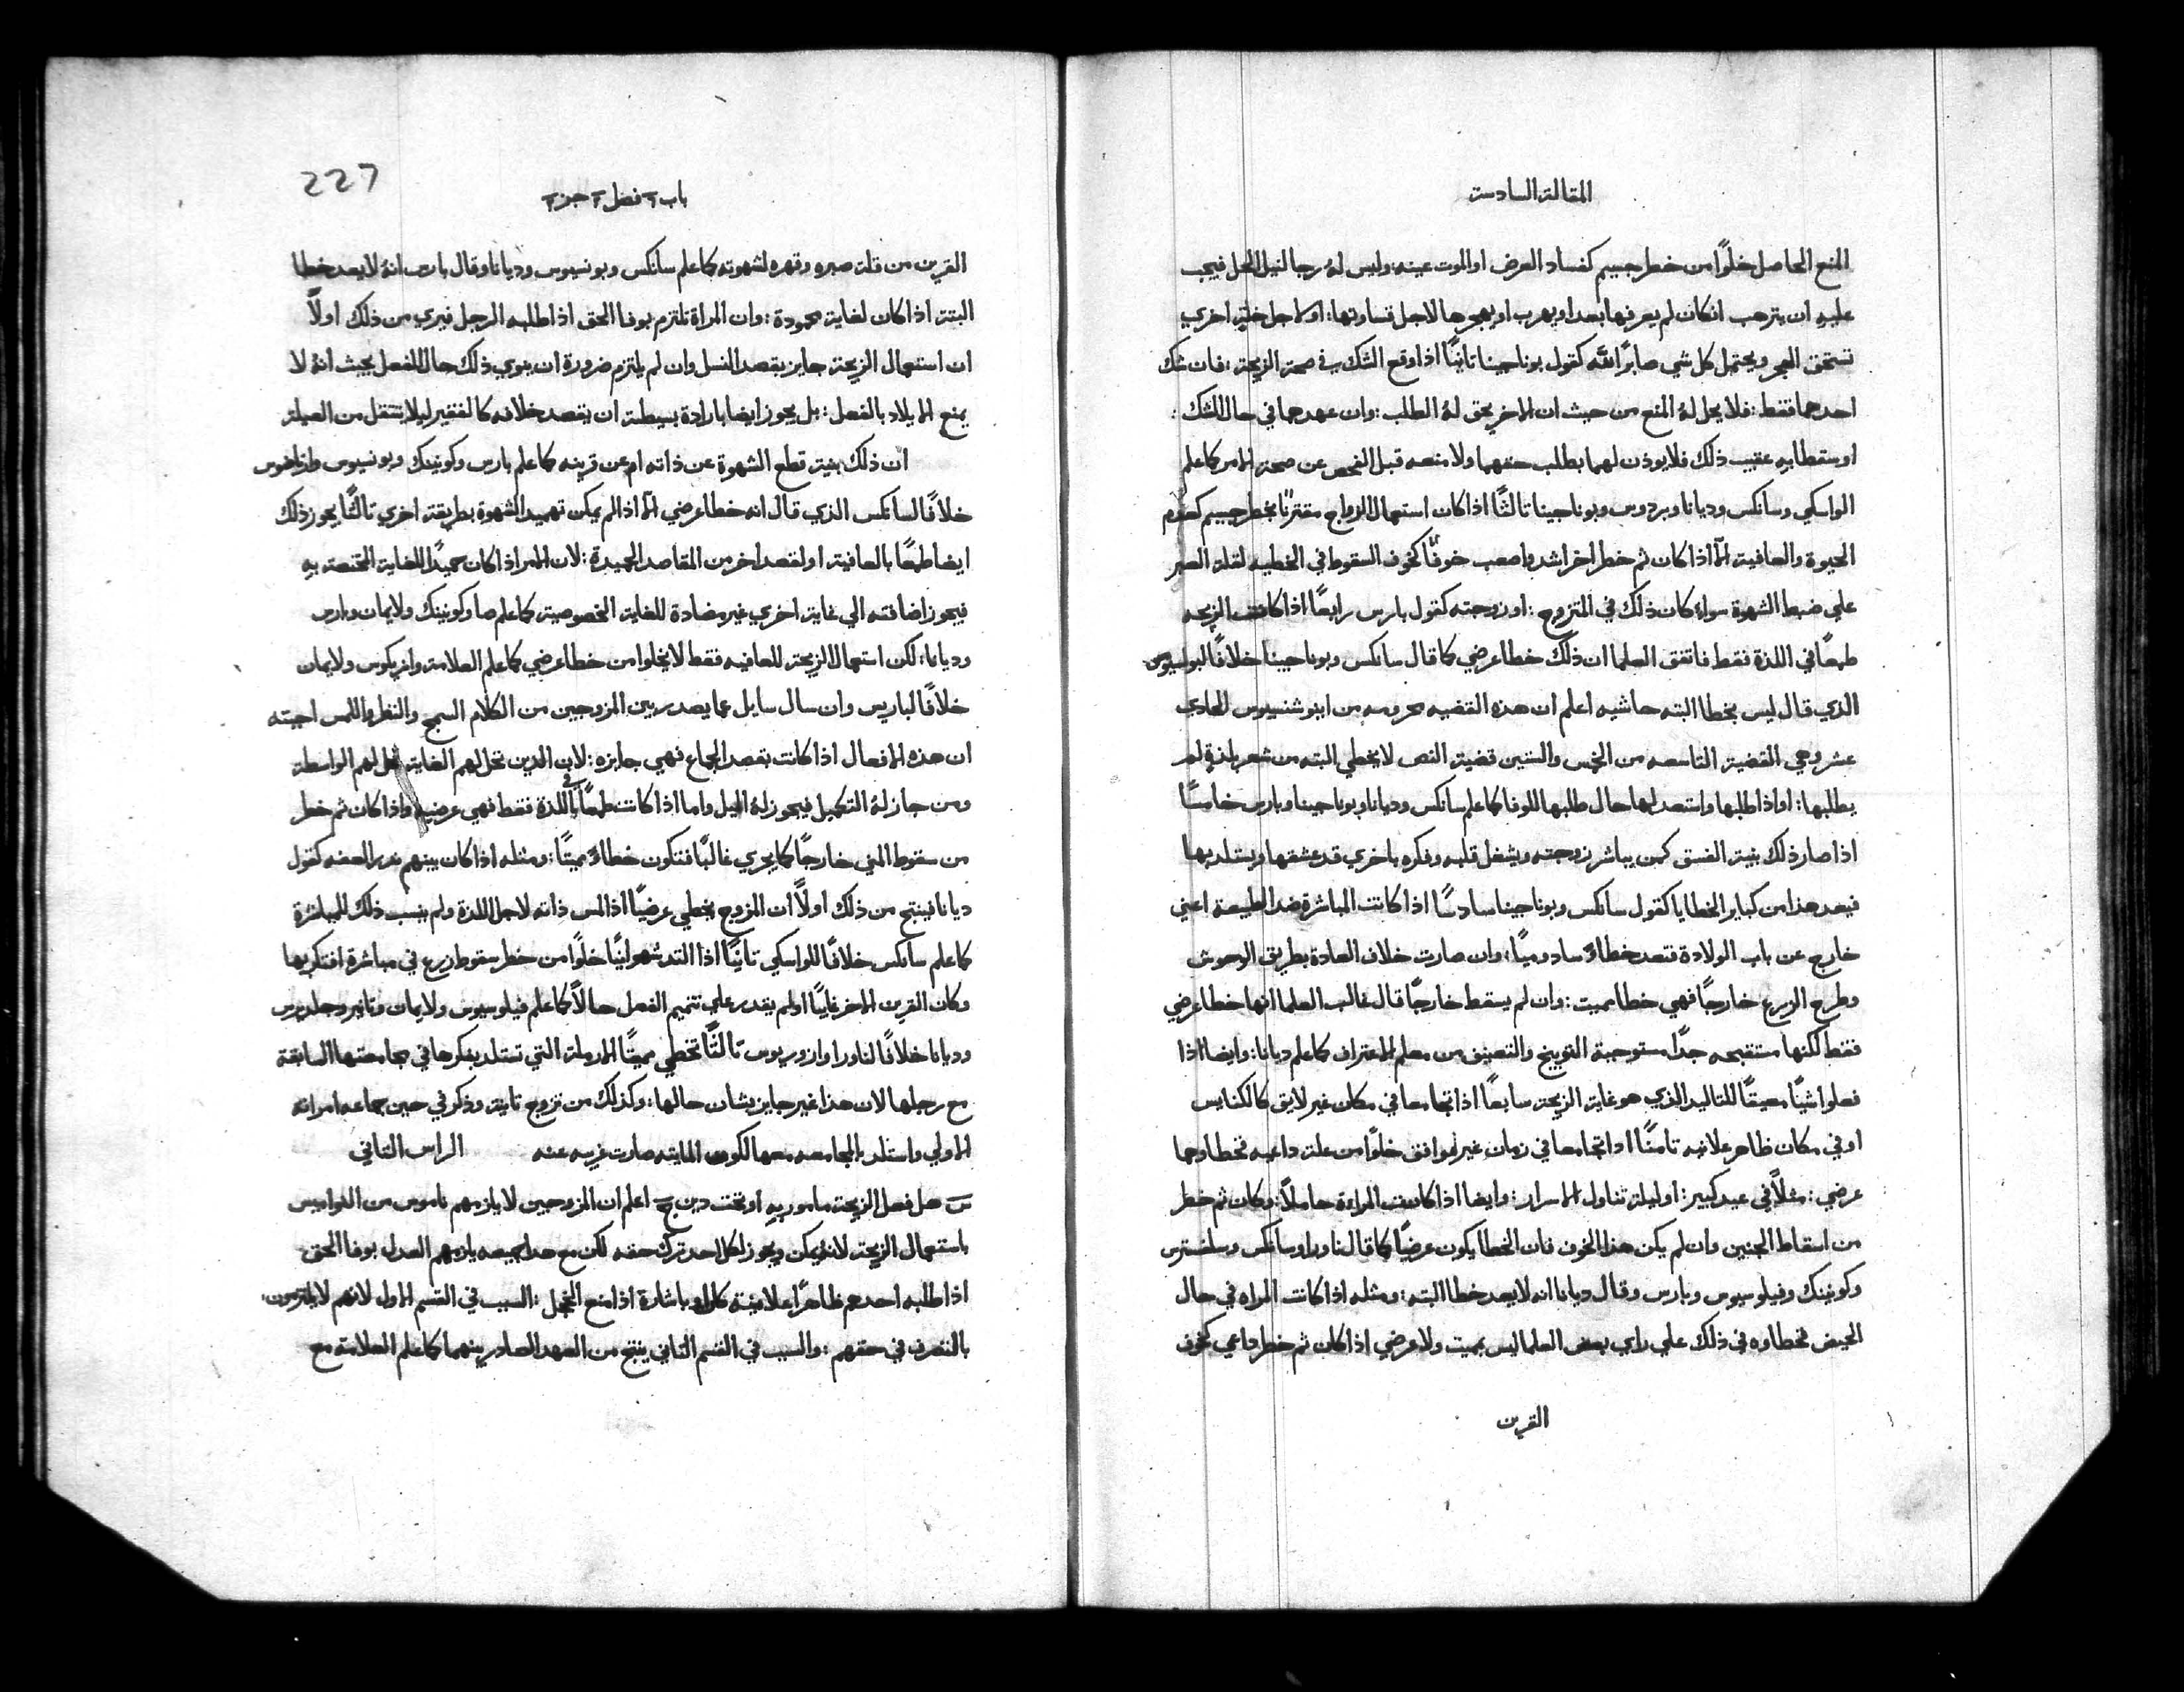 المقالة السادسة
المنع الحاصل خلوًا من خطر جسيم كفساد العرض او الموت عينه وليس له رجا لنيل الحل فيجب
عليه ان يترهب انكان لم يعرفها بعد او يهرب او يهجرها لاجل قساوتها: او لاجل اخري
تستحق الهجر ويحتمل كل شي صابرًا لله كقول بوناجينا ثانيًا اذا وقع الشك في صحة الزيجة: فان شك
احدهما فقط: فلا يحل له المنع من حيث ان الاخر يحق له الطلب: وان عهدهما في حال الشك:
او سقطا به عقيب ذلك فلا يوذن لهما بطلب حقهما ولا منعه قبل الفحص عن صحة الامر كما علم
الواسكي وسانكس وديانا وبردوس وبوناجينا ثالثًا اذا كان استعمال الزواج مقترنًا بخطر جسيم كعدم
الحيوة والعافية الا اذا كان ثم خطر اخر اشد واصعب خوفًا كخوف السقوط في الخطيه لقلة الصبر
علي ضبط الشهوة سواء كان ذلك في المتزوج: او زوجته كقول بارس رابعًا اذا كانت الزيجه
طمعًا في اللذة فقط فاتفق العلما ان ذلك خطا عرضي كما قال سانكس وبوناجينا خلافًا لبونسيوس
الذي قال ليس بخطا البته حاشيه اعلم ان هذه القضيه محرومه من اينوشنسيوس الحادي
عشر وهي القضية التاسعه من الخمس والستين قضية النص لا يخطي البته من شعر بلذة لم
يطلبها: او اذا طلبها واستعد لها حال طلبها للوفا كما علم سانكس وديانا وبوناجينا وبارس خامسًا
اذا صار ذلك بنية الفسق كمن يباشر زوجته ويشغل قلبه وفكره باخري قد عشقها ويستلد بها
فيعد هذا من كباير الخطايا كقول سانكس وبوناجينا سادسًا اذا كانت المباشرة ضد الطبيعة اعني
خارج عن باب الولادة فتعد خطاءً سادوميًا: وان صارت خلاف العادة بطريق الوحوش
وطرح الزرع خارجًا فهي خطا مميت: وان لم يسقط خارجًا قال غالب العلما انها خطا عرضي
فقط لكنها مستقبحه جدًا مستوجبة التوبيخ والتعنيف من معلم الاعتراف كما علم ديانا: وايضا اذا
فعلوا شيًا معيقًا للتاليد الذي هو غاية الزيجة سابعًا اذا تجامعا في مكان غير لايق كالكنايس
او في مكان ظاهر علانيه ثامنًا اذا تجامعا في زمان غير موافق خلوًا من علة داعيه فخطاوهما
عرضي: مثلًا في عيد كبير: او ليلة تناول الاسرار: وايضا اذا كانت المراءة حاملًا: وكان ثم خطر
من اسقاط الجنين وان لم يكن هذا الخوف فان الخطا يكون عرضيًا كما قال ناورا وسانكس وسلفسترس
وكونينك وفيلوسيوس وبارس وقال ديانا انه لا يعد خطا البته: ومثله اذا كانت المراه في حال
الحيض فخطاوه في ذلك علي راي بعض العلما ليس بمميت ولا عرضي اذا كان ثم خطر داعي كخوف
القرين
227
باب ٢ فصل ٢ جز ٢
القرين من قلة صبره وقهره لشهوته كما علم سانكس وبونسيوس وديانا وقال بارس انه لا يعد خطا
البتة اذا كان لغاية محمودة: وان المراة تلتزم بوفا الحق اذا طلبه الرجل فبري من ذلك اولًا
ان استعمال الزيجة جايز بقصد النسل وان لم يلتزم ضرورة ان ينوي ذلك حال الفعل بحيث انه لا
يمنع الايلاد بالفعل: بل يجوز ايضا بارادة بسيطة ان يقصد خلافه كالفقير ليلا يتثقل من العيلة
ان ذلك بنية قطع الشهوة عن ذاته ام عن قرينه كما علم بارس وكونينك وبونسيوس
خلافًا لسانكس الذي قال انه خطا عرضي الا اذا لم يمكن تهميد الشهوة بطريقة اخري ثالثًا يجوز ذلك
ايضا طمعًا بالعافية او لقصد اخر من المقاصد الحميدة: لان الامر اذا كان حميدًا للغاية المختصة به
فيجوز اضافته الي غاية اخري غير مضادة للغاية الخصوصية كما علم صا وكونينك ولايمان وبارس
وديانا: لكن استعمال الزيجة للعافيه فقط لا يخلوا من خطا عرضي كما علم العلامة وانريكوس ولايمان
خلافًا لباريس وان سال سايل عما يصدر بين المزوجين من الكلام السمج والنظر واللمس اجبته
ان هذه الافعال اذا كانت بقصد الجماع فهي جايزه: لان الدين تحل لهم الغاية تحل لهم الواسطة
ومن جاز له التكميل فيجوز له الميل واما اذا كانت طمعًا في اللذة فقط فهي عرضيه واذا كان ثم خطر
من سقوط المني خارجًا كما يجري غالبًا فتكون خطاءً مميتًا: ومثله اذا كان بينهم نذر العفه كقول
ديانا فينتج من ذلك اولًا ان المزوج يخطي عرضيًا اذا لمس ذاته لاجل اللذة ولم ينسب ذلك للمباشرة
كما علم سانكس خلافًا للواسكي ثانيًا اذا التد شهوانيًا خلوًا من خطر سقوط زرع في مباشرة افتكر بها
وكان القرين الاخر غايبًا او لم يقدر علي تتميم الفعل حالًا كما علم فيلوسيوس ولايمان وتانير وجلدرس
وديانا خلافًا لناورا وازوريوس ثالثًا تخطي مميتًا الارملة التي تستلد بفكرها في مجامعتها السابقة
مع رجلها لان هذا غير جايز بشان حالها: وكذلك من تزوج ثانية وذكر في حين جماعه امراته
الاولي واستلد بالمجامعه معها لكون المايته صارت غريبه عنه الراس الثاني
س هل فعل الزيجة مامور به او تحت دين ج اعلم ان المزوجين لا يلزمهم ناموس من النواميس
باستعمال الزيجة لانه يمكن ويجوز لكل احد ترك حقه لكن مع هذا جميعه يلزمهم العدل بوفا الحق
اذا طلبه احدهم ظاهرًا علانية كان او باشارة اذا منع الخجل: السبب في القسم الاول لانهم لا يلتزمون
بالتصرف في حقهم: والسبب في القسم الثاني ينتج من العهد الصادر بينهما كما علم العلامة مع